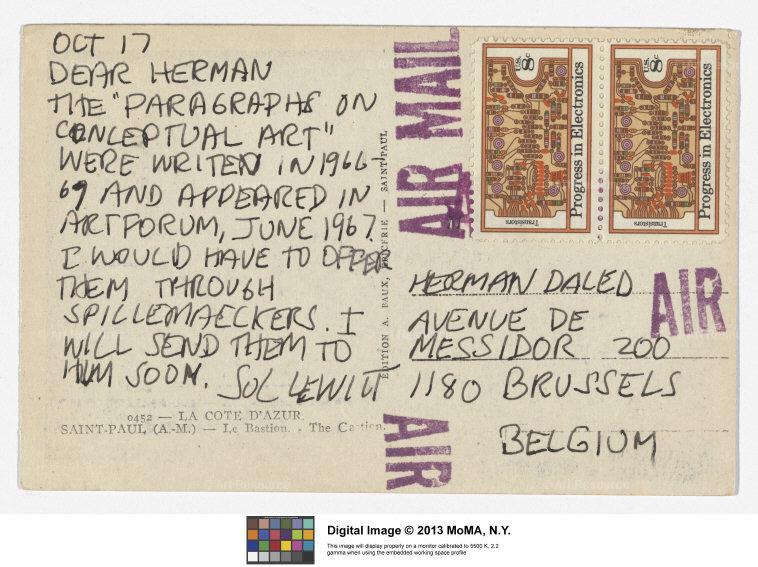 OCT 17
DEAR HERMAN
THE "PARAGRAPHS ON
CONCEPTUAL ART"
WERE WRITEN IN 1966-
67 AND APPEARED IN
ARTFORUM, JUNE 1967.
I WOULD HAVE TO OFFER
THEM THROUGH
SPILLEMAECKERS. I
WILL SEND THEM TO
HIM SOON. SOL LEWITT
0452 — LA COTE D'AZUR.
SAINT-PAUL (A.-M.) — Le Bastion. - The
EDITION A. — SAINT-PAUL
AIR MAIL
U.S. 8c
Progress in Electronics
Transistors
U.S. 8c
Progress in Electronics
Transistors
HERMAN DALED
AIR
AVENUE DE
MESSIDOR 200
1180 BRUSSELS
BELGIUM
AIR
© Art Resource
© Art Resource
Digital Image © 2013 MoMA, N.Y.
This image will display properly on a monitor calibrated to 6500 K, 2.2
gamma when using the embedded working space profile